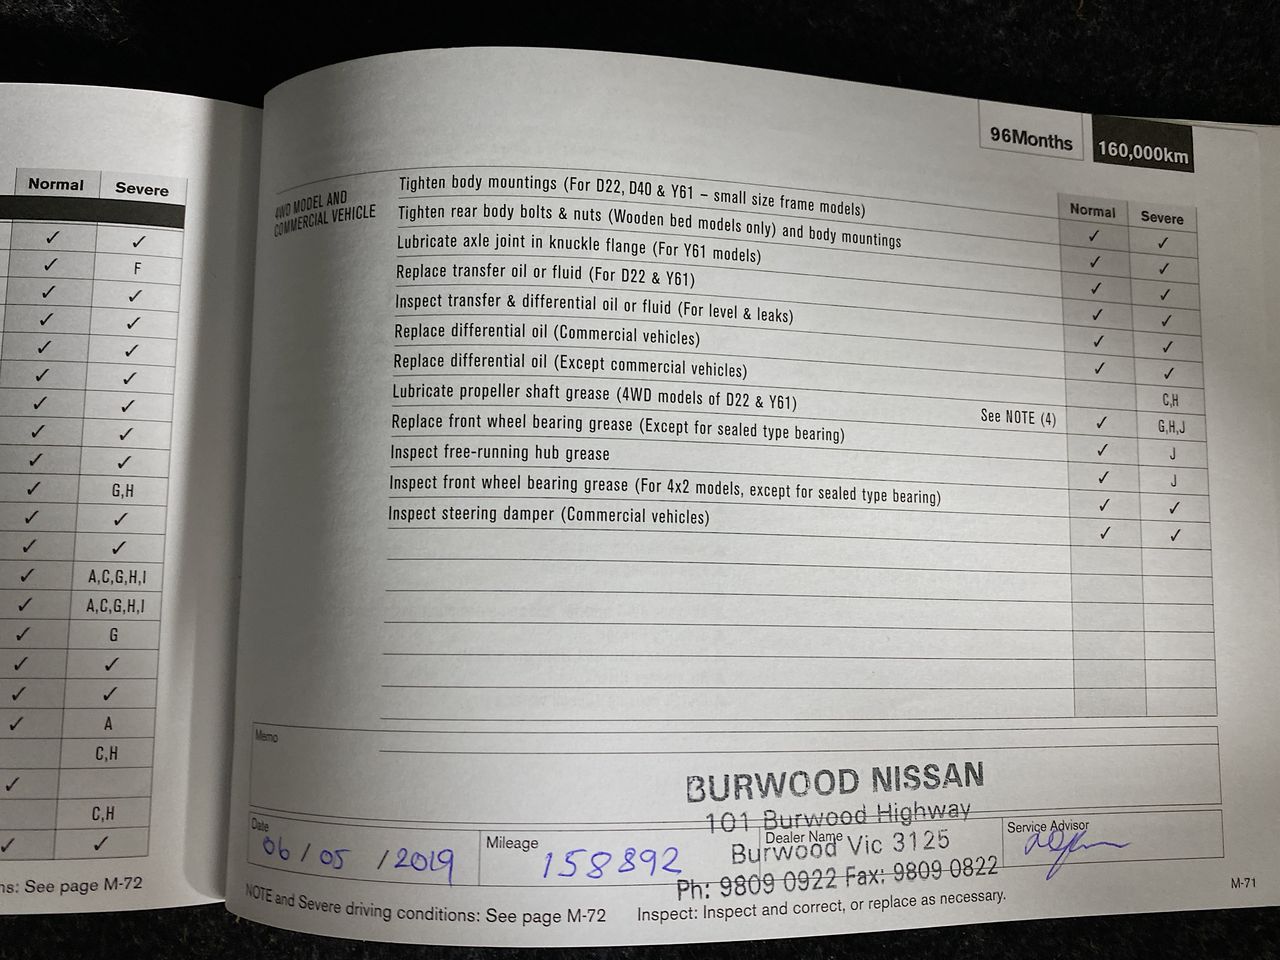 Normal Severe
✓ ✓
✓ F
✓ ✓
✓ ✓
✓ ✓
✓ ✓
✓ ✓
✓ ✓
✓ ✓
✓ G,H
✓ ✓
✓ ✓
✓ A,C,G,H,I
✓ A,C,G,H,I
✓ G
✓ ✓
✓ ✓
✓ A
C,H
✓
C,H
✓ ✓
ns: See page M-72
96Months 160,000km
Normal Severe
4WD MODEL AND
COMMERCIAL VEHICLE
Tighten body mountings (For D22, D40 & Y61 – small size frame models) ✓ ✓
Tighten rear body bolts & nuts (Wooden bed models only) and body mountings ✓ ✓
Lubricate axle joint in knuckle flange (For Y61 models) ✓ ✓
Replace transfer oil or fluid (For D22 & Y61) ✓ ✓
Inspect transfer & differential oil or fluid (For level & leaks) ✓ ✓
Replace differential oil (Commercial vehicles) ✓ ✓
Replace differential oil (Except commercial vehicles) C,H
Lubricate propeller shaft grease (4WD models of D22 & Y61) See NOTE (4) ✓ G,H,J
Replace front wheel bearing grease (Except for sealed type bearing) ✓ J
Inspect free-running hub grease ✓ J
Inspect front wheel bearing grease (For 4x2 models, except for sealed type bearing) ✓ ✓
Inspect steering damper (Commercial vehicles) ✓ ✓
Memo
BURWOOD NISSAN
101 Burwood Highway
Burwood Vic 3125
Ph: 9809 0922 Fax: 9809 0822
Date
06/05/2019
Mileage
158892
Dealer Name
Service Advisor
NOTE and Severe driving conditions: See page M-72 Inspect: Inspect and correct, or replace as necessary.
M-71